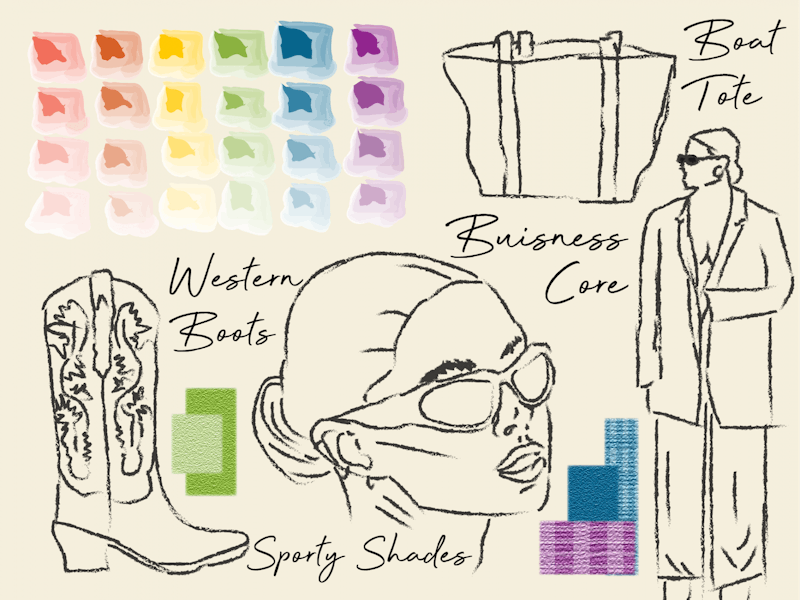 Boat
Tote
Buisness
Core
Western
Boots
Sporty Shades